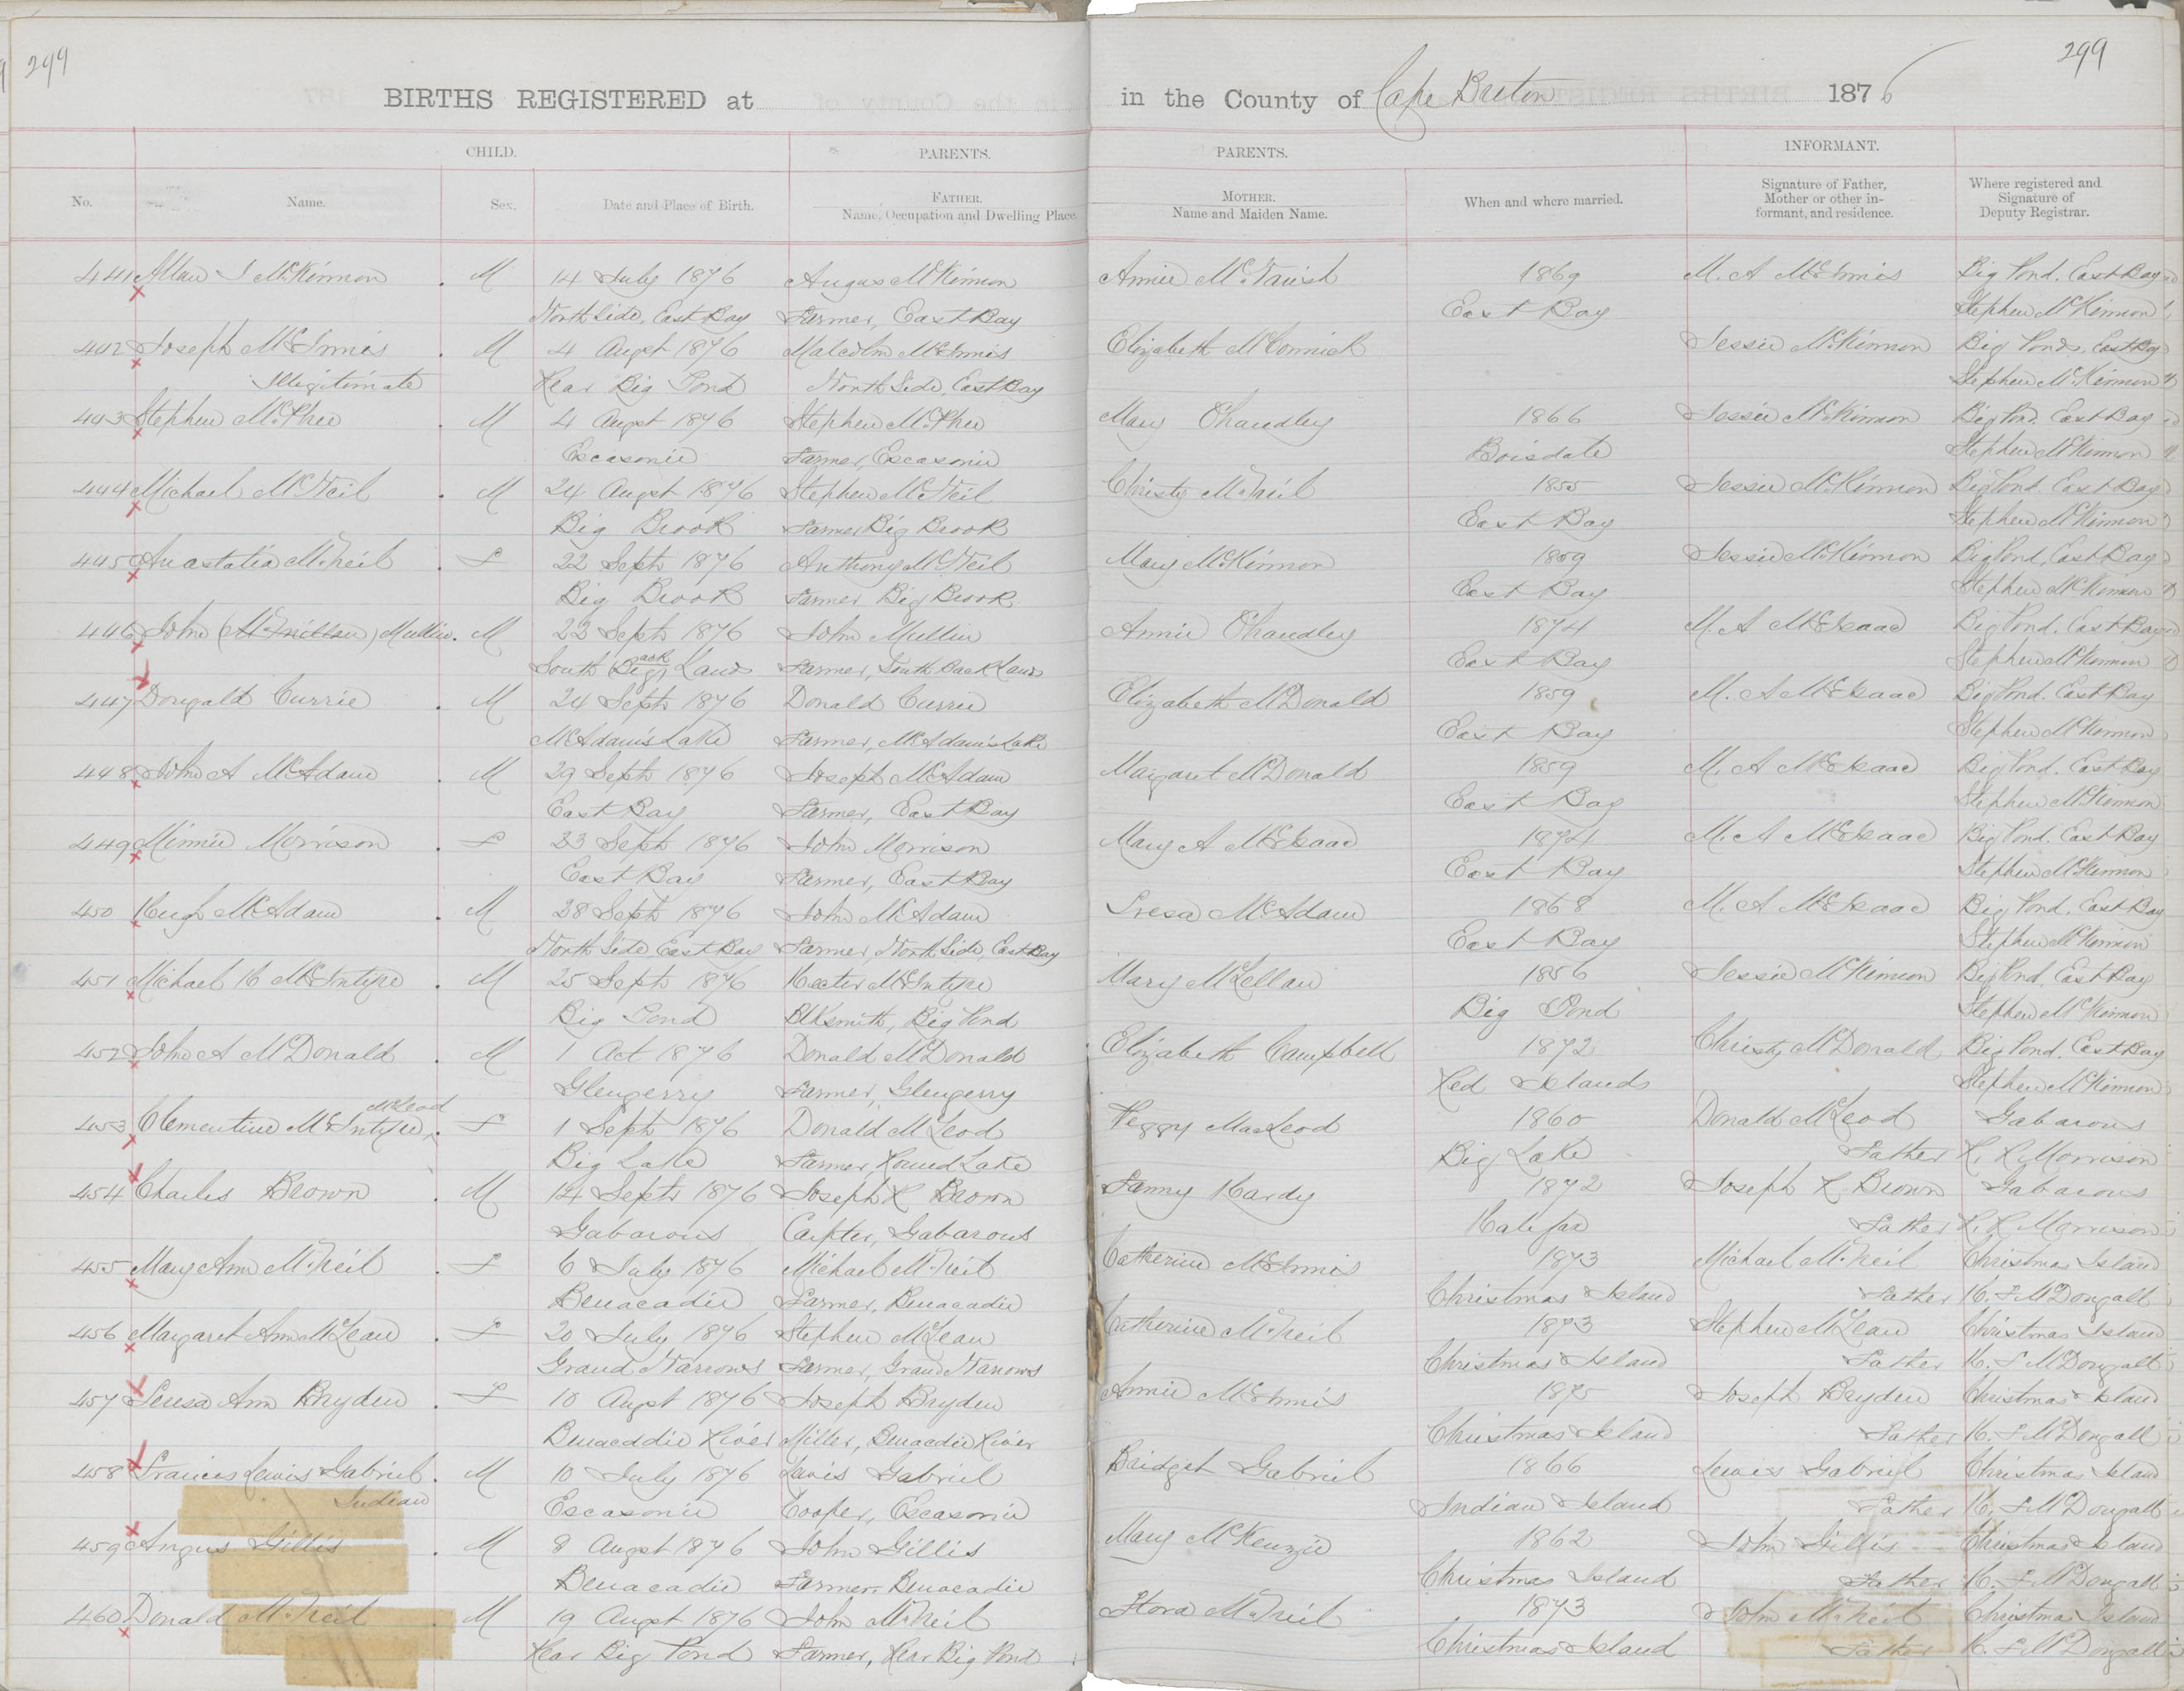 299
299
BIRTHS REGISTERED at in the County of Cape Breton 1876
CHILD. PARENTS. PARENTS. INFORMANT.
No. Name. Sex. Date and Place of Birth. FATHER. Name, Occupation and Dwelling Place. MOTHER. Name and Maiden Name. When and where married. Signature of Father, Mother or other informant, and residence. Where registered and Signature of Deputy Registrar.
441 Allan J McKinnon . M 14 July 1876 Angus McKinnon Annie McTavish 1869 M. A McInnis Big Pond. East Bay
North Side, East Bay Farmer, East Bay East Bay Stephen McKinnon
442 Joseph McInnis . M 4 Augst 1876 Malcolm McInnis Elizabeth McCormick Jessie McKinnon Big Pond. East Bay
Illegitimate Rear Big Pond North Side, East Bay Stephen McKinnon
443 Stephen McPhee . M 4 Augst 1876 Stephen McPhee Mary Chandley 1866 Jessie McKinnon Big Pond. East Bay
Escasonie Farmer, Escasonie Boisdale Stephen McKinnon
444 Michael McNeil . M 24 Augst 1876 Stephen McNeil Christy McNeil 1855 Jessie McKinnon Big Pond. East Bay
Big Brook Farmer Big Brook East Bay Stephen McKinnon
445 Anastatia McNeil . F 22 Septr 1876 Anthony McNeil Mary McKinnon 1859 Jessie McKinnon Big Pond, East Bay
Big Brook Farmer Big Brook East Bay Stephen McKinnon
446 John (McMillan) Mullin . M 22 Septr 1876 John Mullin Annie Chandley 1874 M. A McIsaac Big Pond. East Bay
South Big ack Lands Farmer, South Back Lands East Bay Stephen McKinnon
447 Dougald Currie . M 24 Septr 1876 Donald Currie Elizabeth McDonald 1859 M. A McIsaac Big Pond. East Bay
McAdam's Lake Farmer, McAdam's Lake East Bay Stephen McKinnon
448 John A McAdam . M 29 Septr 1876 Joseph McAdam Margaret McDonald 1859 M. A McIsaac Big Pond. East Bay
East Bay Farmer, East Bay East Bay Stephen McKinnon
449 Minnie Morrison . F 23 Septr 1876 John Morrison Mary A McIsaac 1874 M. A McIsaac Big Pond. East Bay
East Bay Farmer, East Bay East Bay Stephen McKinnon
450 Hugh McAdam . M 28 Septr 1876 John McAdam Tresa McAdam 1868 M. A McIsaac Big Pond, East Bay
North Side East Bay Farmer, North Side, East Bay East Bay Stephen McKinnon
451 Michael H McIntyre . M 25 Septr 1876 Hector McIntyre Mary McLellan 1856 Jessie McKinnon Big Pond, East Bay
Big Pond Blksmith, Big Pond Big Pond Stephen McKinnon
452 John A McDonald . M 1 Oct 1876 Donald McDonald Elizabeth Campbell 1872 Christy McDonald Big Pond. East Bay
Glengerry Farmer, Glengerry Red Islands Stephen McKinnon
McLeod
453 Clementine McIntyre . F 1 Septr 1876 Donald McLeod Peggy MacLeod 1860 Donald McLeod Gabarous
Big Lake Farmer, Round Lake Big Lake Father R. R. Morrison
454 Charles Brown . M 14 Septr 1876 Joseph R Brown Fanny Hardy 1872 Joseph R. Brown Gabarous
Gabarous Carpter, Gabarous Halifax Father R. R. Morrison
455 Mary Ann McNeil . F 6 July 1876 Michael McNeil Catherine McInnis 1873 Michael McNeil Christmas Island
Benacadie Farmer, Benacadie Christmas Island Father H. F McDougall
456 Margaret Ann McLean . F 20 July 1876 Stephen McLean Catherine McNeil 1873 Stephen McLean Christmas Island
Grand Narrows Farmer, Grand Narrows Christmas Island Father H. F McDougall
457 Teresa Ann Bryden . F 10 Augst 1876 Joseph Bryden Annie McInnis 1875 Joseph Bryden Christmas Island
Benacddie River Miller, Benacdie River Christmas Island Father H. F McDougall
458 Frances Lewis Gabriel . M 10 July 1876 Lewis Gabriel Bridget Gabriel 1866 Lewis Gabriel Christmas Island
Indian Escasonie Cooper, Escasonie Indian Island Father H. F McDougall
459 Angus Gillis . M 8 Augst 1876 John Gillis Mary McKenzie 1862 John Gillis Christmas Island
Benacadie Farmer Benacadie Christmas Island Father H. F McDougall
460 Donald McNeil . M 19 Augst 1876 John McNeil Flora McNeil 1873 John McNeil Christmas Island
Rear Big Pond Farmer, Rear Big Pond Christmas Island Father H. F McDougall